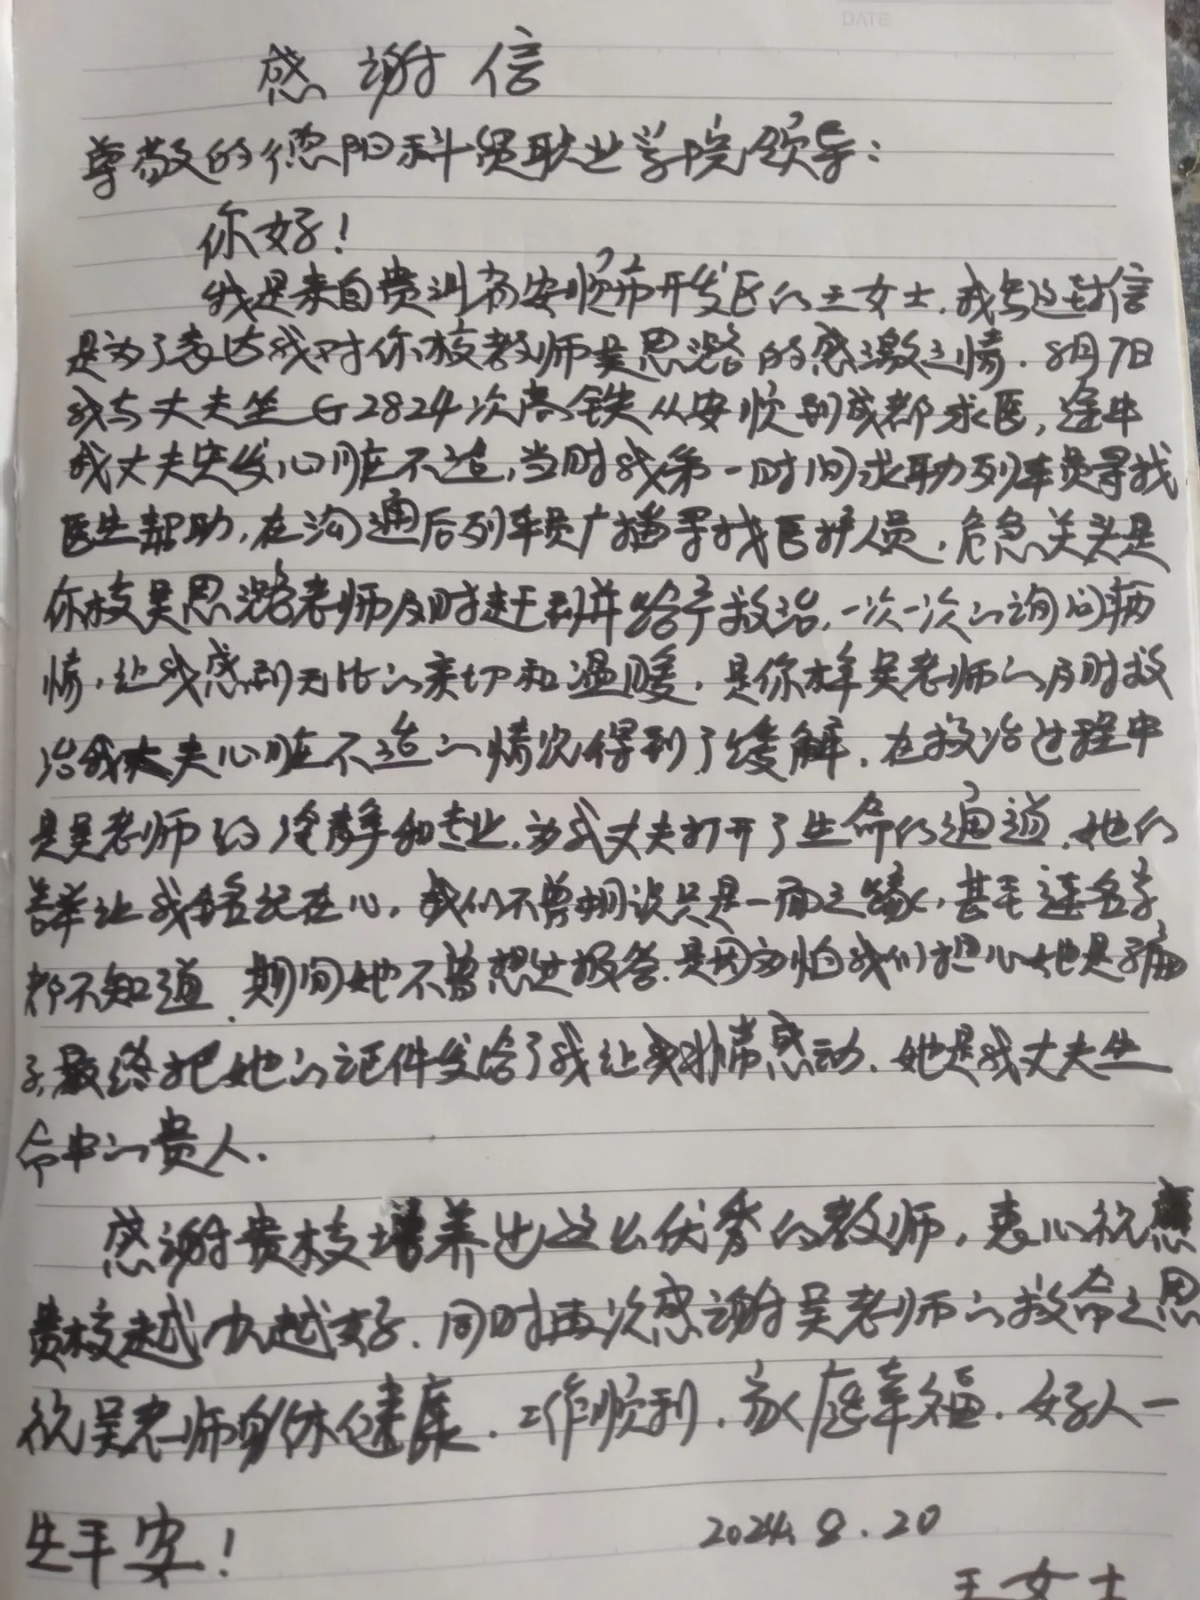 DATE
感谢信
尊敬的德阳科贸职业学院领导：
你好！
我是来自贵州省安顺市开发区的王女士.我写这封信
是为了表达我对你校教师吴思潞的感激之情.8月7日
我与丈夫坐G2824次高铁从安顺到成都求医,途中
我丈夫突发心脏不适,当时我第一时间求助列车员寻找
医生帮助,在沟通后列车员广播寻找医护人员.危急关头是
你校吴思潞老师及时赶到并给予救治,一次一次的询问病
情,让我感到无比的亲切和温暖.是你校吴老师的及时救
治我丈夫心脏不适的情况得到了缓解.在救治过程中
是吴老师的冷静和专业.为我丈夫打开了生命的通道.她的
善举让我铭记在心,我们不曾相识只是一面之缘,甚至连名字
都不知道.期间她不曾想过报答.是因为怕我们担心她是骗
子,最终把她的证件发给了我让我非常感动.她是我丈夫生
命中的贵人.
感谢贵校培养出这么优秀的教师,衷心祝愿
贵校越办越好.同时再次感谢吴老师的救命之恩
祝吴老师身体健康.工作顺利.家庭幸福.好人一
生平安!
2024.8.20
王女士